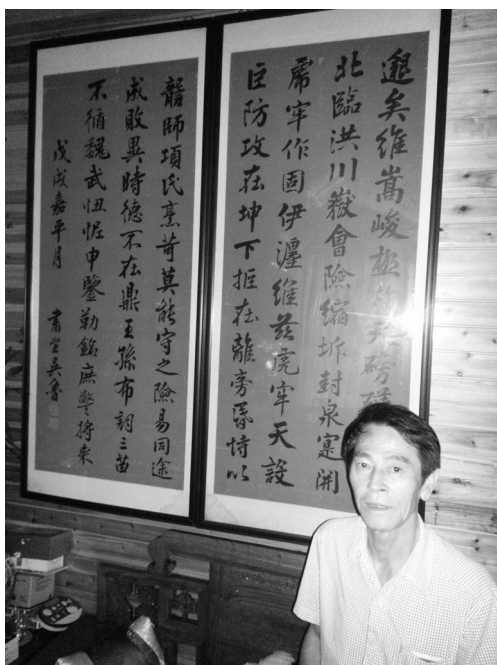 邈矣維嵩峻極磅
北臨洪川嶽會險縮坼封泉寔開
牢作固伊瀍維茲虎牢天設
巨防攻在坤下拒在離旁昏恃以
師項氏烹苛莫能守之險易同途
成敗異時德不在鼎王孫布詞三苗
不循魏武忸怩申鑒勒銘庶警將來
戊戌嘉平月
肅堂吳魯